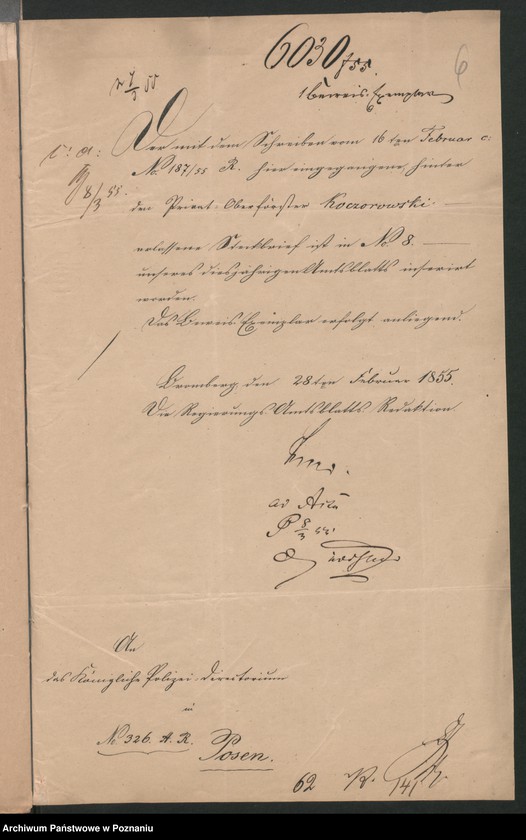 6030/55.
6
1 Beweis-Exemplar
Der mit dem Schreiben vom 16ten Februar c:
No 187/55 R. hier eingegangene, hinter
den Privat-Oberförster Koczorowski
erlassene Steckbrief ist in No 8. —
unseres diesjährigen Amtsblatts inserirt
worden.
Das Beweis-Exemplar erfolgt anliegend.
8/3 55.
Bromberg den 28ten Februar 1855.
Die Regierungs Amtsblatts Redaktion
ad Acta
P 8/3 55.
An
das Königliche Polizei-Direktorium
in
No 326. A. R. Posen.
62
Archiwum Państwowe w Poznaniu